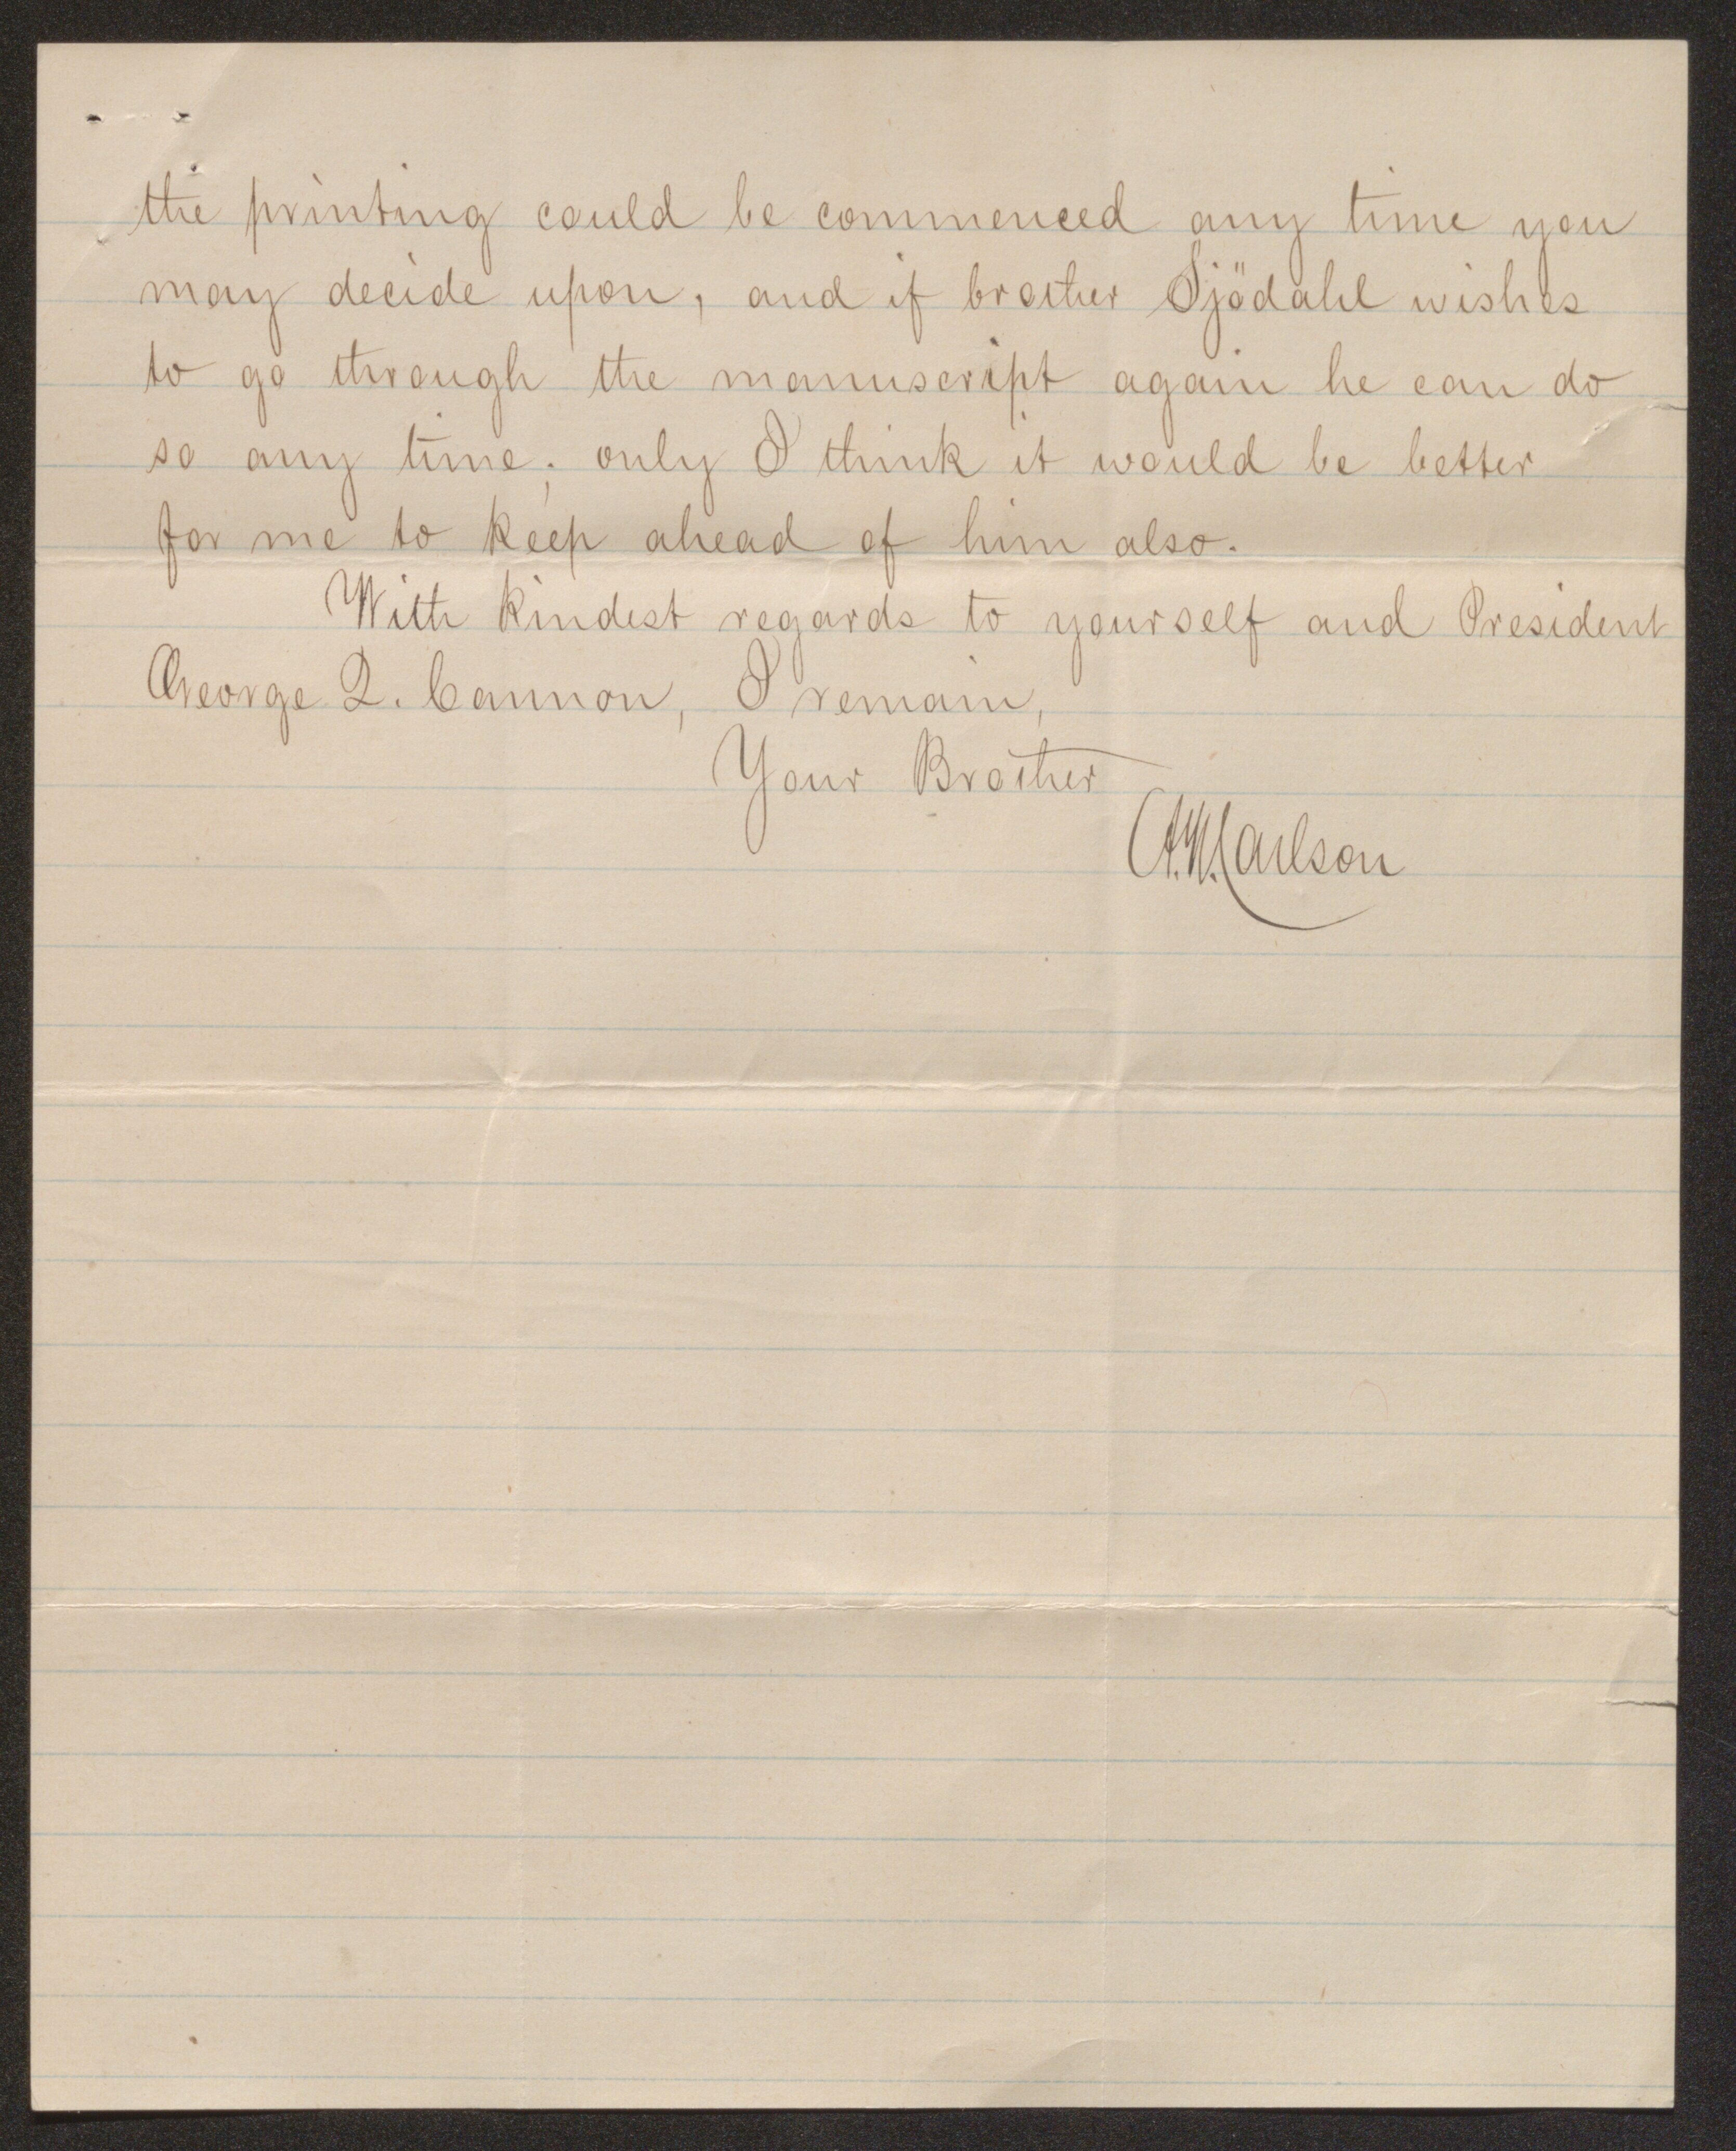 the printing could be commenced any time you
may decide upon, and if brother Sjödahl wishes
to go through the manuscript again he can do
so any time; only I think it would be better
for me to keep ahead of him also.
With kindest regards to yourself and President
George Q. Cannon, I remain,
Your Brother
A.W. Carlson